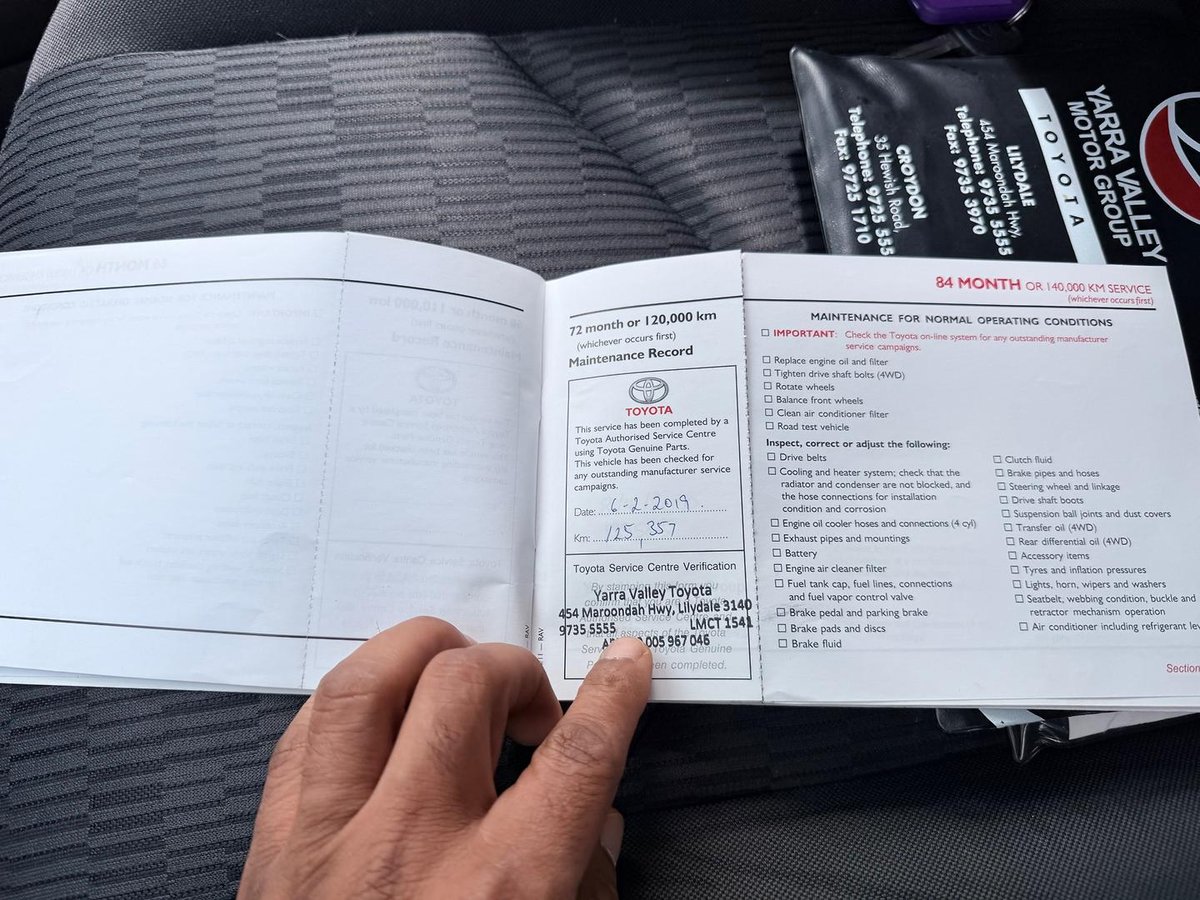 YARRA VALLEY
MOTOR GROUP
TOYOTA
LILYDALE
454 Maroondah Hwy,
Telephone: 9735 5555
Fax: 9735 3970
CROYDON
35 Hewish Road,
Telephone: 9725 555
Fax: 9725 1710
72 month or 120,000 km
(whichever occurs first)
Maintenance Record
TOYOTA
This service has been completed by a
Toyota Authorised Service Centre
using Toyota Genuine Parts.
This vehicle has been checked for
any outstanding manufacturer service
campaigns.
Date: 6-2-2019
Km: 125,357
Toyota Service Centre Verification
By stamping this form you
Yarra Valley Toyota
454 Maroondah Hwy, Lilydale 3140
9735 5555 LMCT 1541
005 967 046
completed.
84 MONTH OR 140,000 KM SERVICE
(whichever occurs first)
MAINTENANCE FOR NORMAL OPERATING CONDITIONS
IMPORTANT: Check the Toyota on-line system for any outstanding manufacturer
service campaigns.
Replace engine oil and filter
Tighten drive shaft bolts (4WD)
Rotate wheels
Balance front wheels
Clean air conditioner filter
Road test vehicle
Inspect, correct or adjust the following:
Drive belts
Cooling and heater system; check that the
radiator and condenser are not blocked, and
the hose connections for installation
condition and corrosion
Engine oil cooler hoses and connections (4 cyl)
Exhaust pipes and mountings
Battery
Engine air cleaner filter
Fuel tank cap, fuel lines, connections
and fuel vapor control valve
Brake pedal and parking brake
Brake pads and discs
Brake fluid
Clutch fluid
Brake pipes and hoses
Steering wheel and linkage
Drive shaft boots
Suspension ball joints and dust covers
Transfer oil (4WD)
Rear differential oil (4WD)
Accessory items
Tyres and inflation pressures
Lights, horn, wipers and washers
Seatbelt, webbing condition, buckle and
retractor mechanism operation
Air conditioner including refrigerant
Section